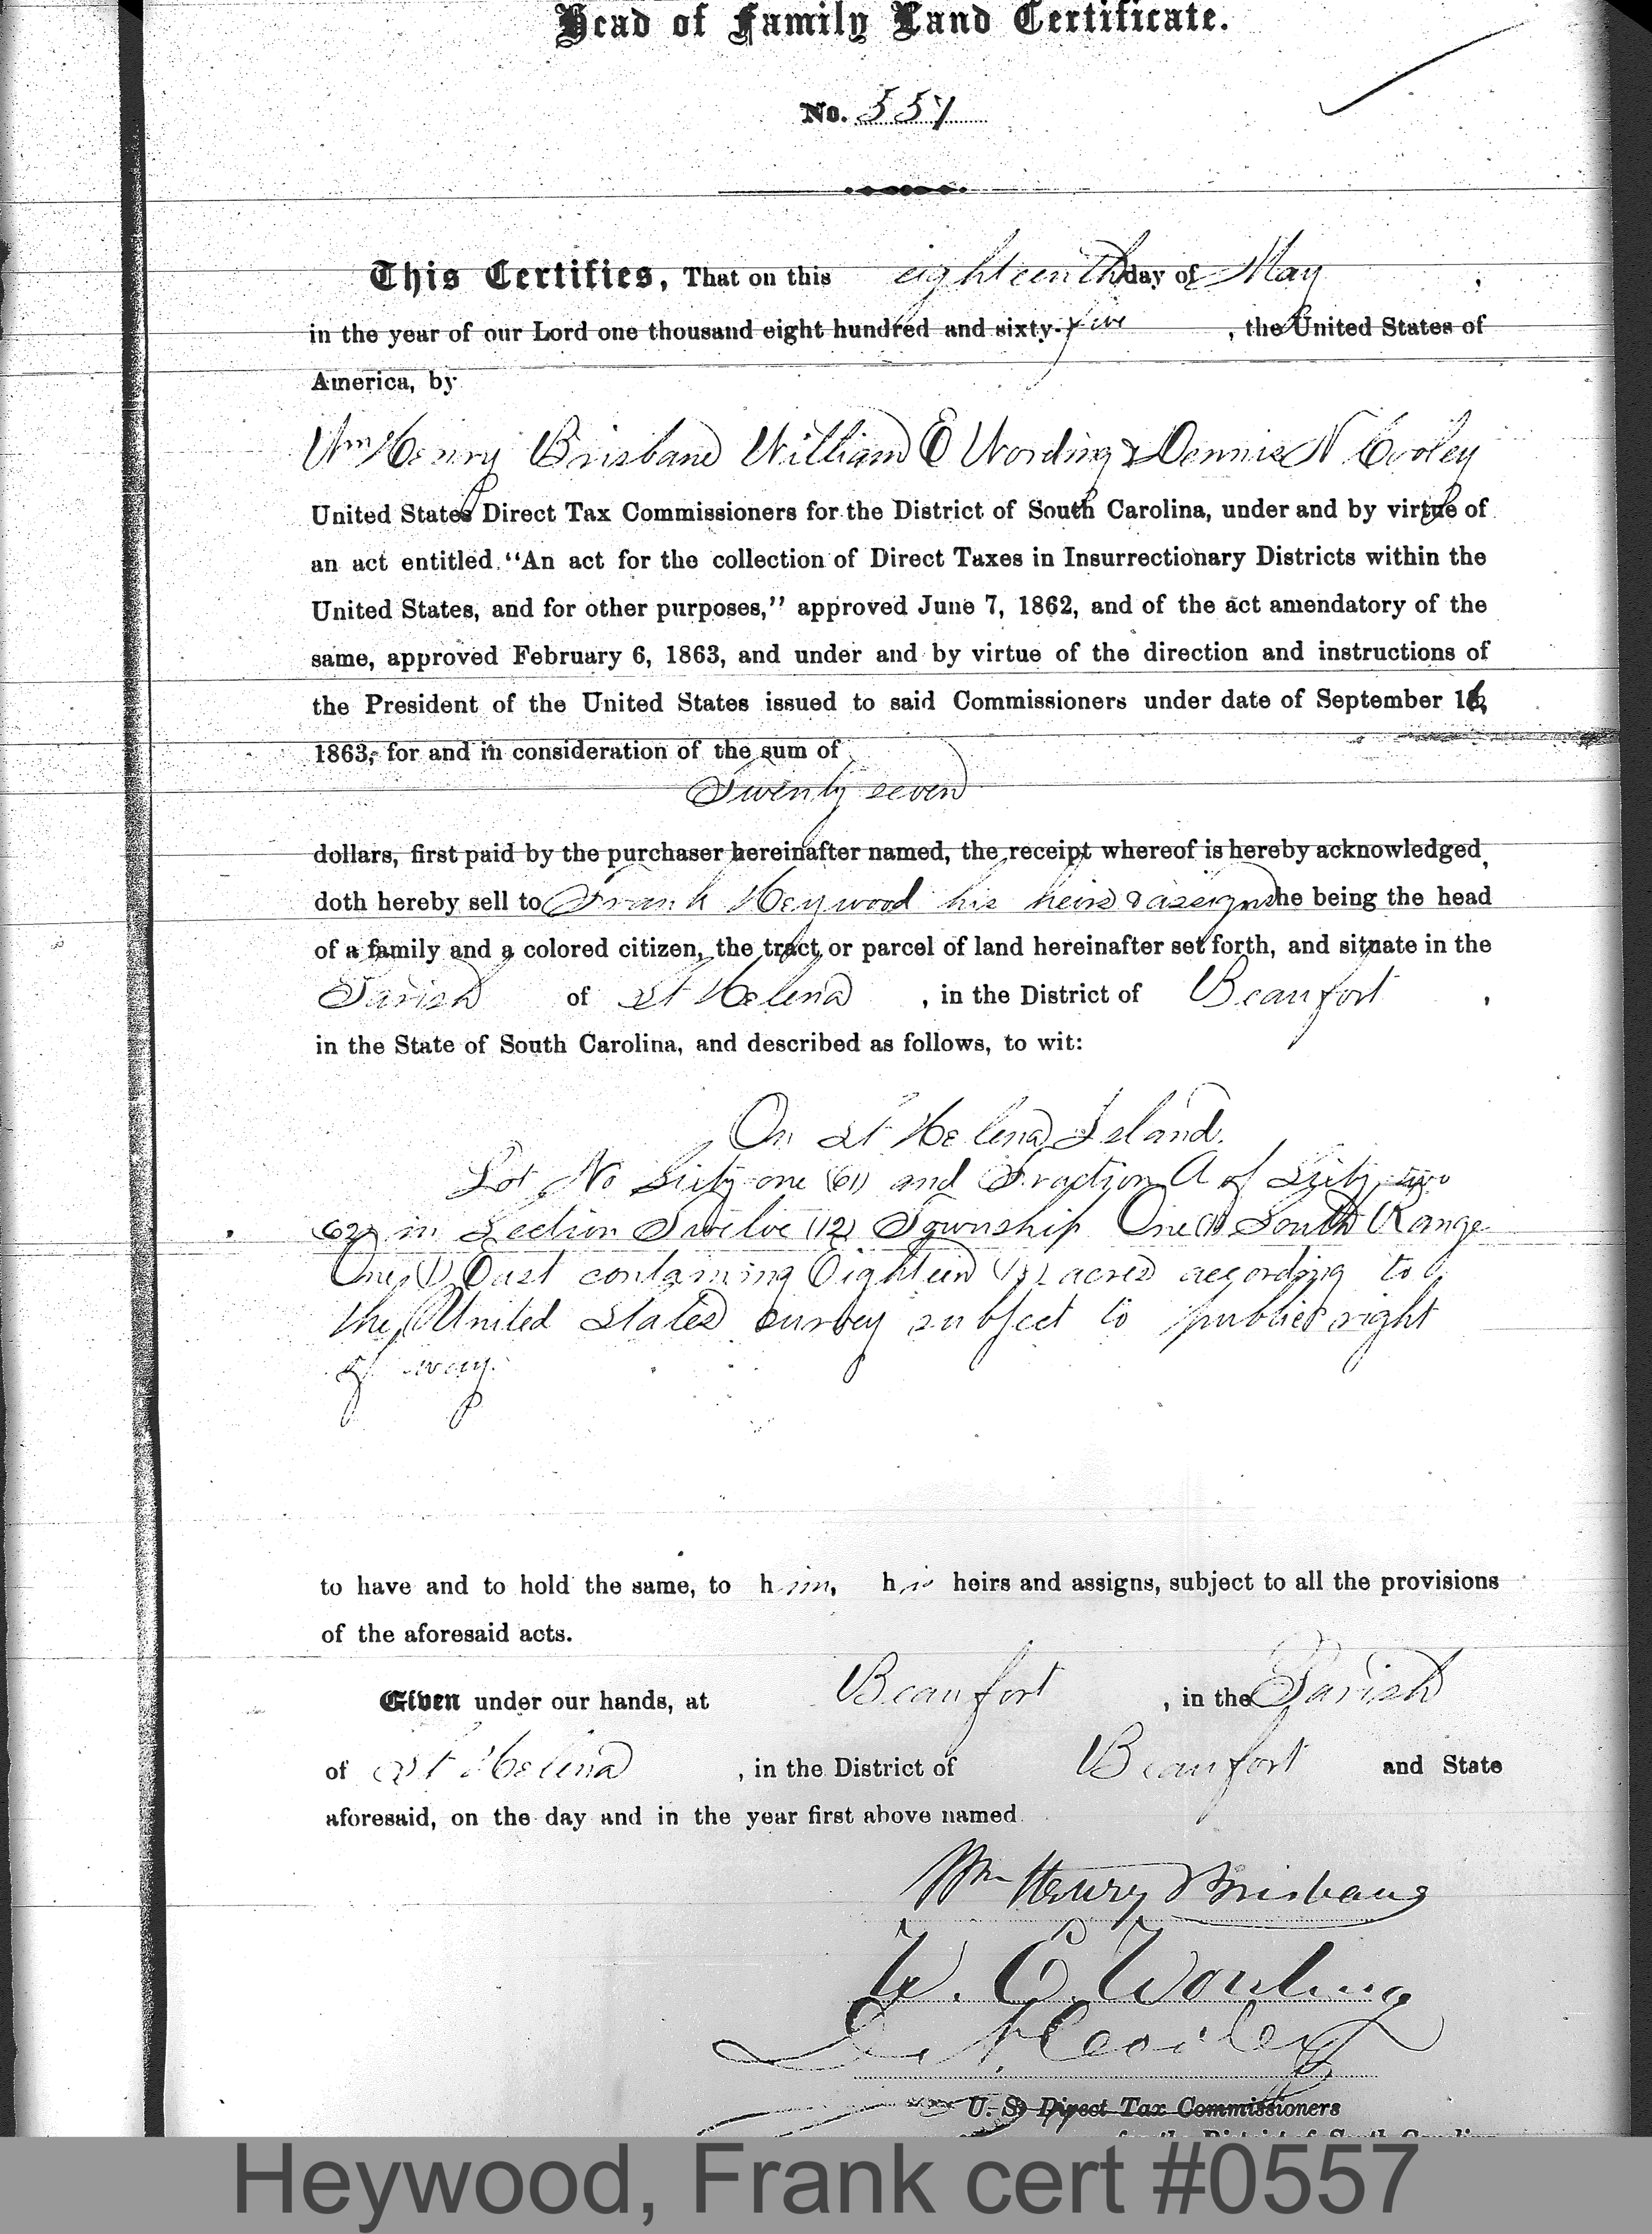 Head of Family Land Certificate.
No. 557
This Certifies, That on this eighteenth day of May,
in the year of our Lord one thousand eight hundred and sixty-five, the United States of
America, by
Wm Henry Brisbane William E Wording & Dennis N Cooley
United States Direct Tax Commissioners for the District of South Carolina, under and by virtue of
an act entitled "An act for the collection of Direct Taxes in Insurrectionary Districts within the
United States, and for other purposes," approved June 7, 1862, and of the act amendatory of the
same, approved February 6, 1863, and under and by virtue of the direction and instructions of
the President of the United States issued to said Commissioners under date of September 16,
1863, for and in consideration of the sum of
Twenty seven
dollars, first paid by the purchaser hereinafter named, the receipt whereof is hereby acknowledged,
doth hereby sell to Frank Heywood his heirs & assigns he being the head
of a family and a colored citizen, the tract or parcel of land hereinafter set forth, and situate in the
Parish of St Helena, in the District of Beaufort,
in the State of South Carolina, and described as follows, to wit:
On St Helena Island.
Lot No Sixty-one (61) and Fraction A of Sixty-two
(62) in Section Twelve (12) Township One (1) South Range
One (1) East containing Eighteen (18) acres according to
the United States survey subject to public right
of way.
to have and to hold the same, to him, his heirs and assigns, subject to all the provisions
of the aforesaid acts.
Given under our hands, at Beaufort, in the Parish
of St Helena, in the District of Beaufort and State
aforesaid, on the day and in the year first above named.
Wm Henry Brisbane
W. E. Wording
D. N. Cooley
U. S. Direct Tax Commissioners
for the District of South Carolina
Heywood, Frank cert #0557